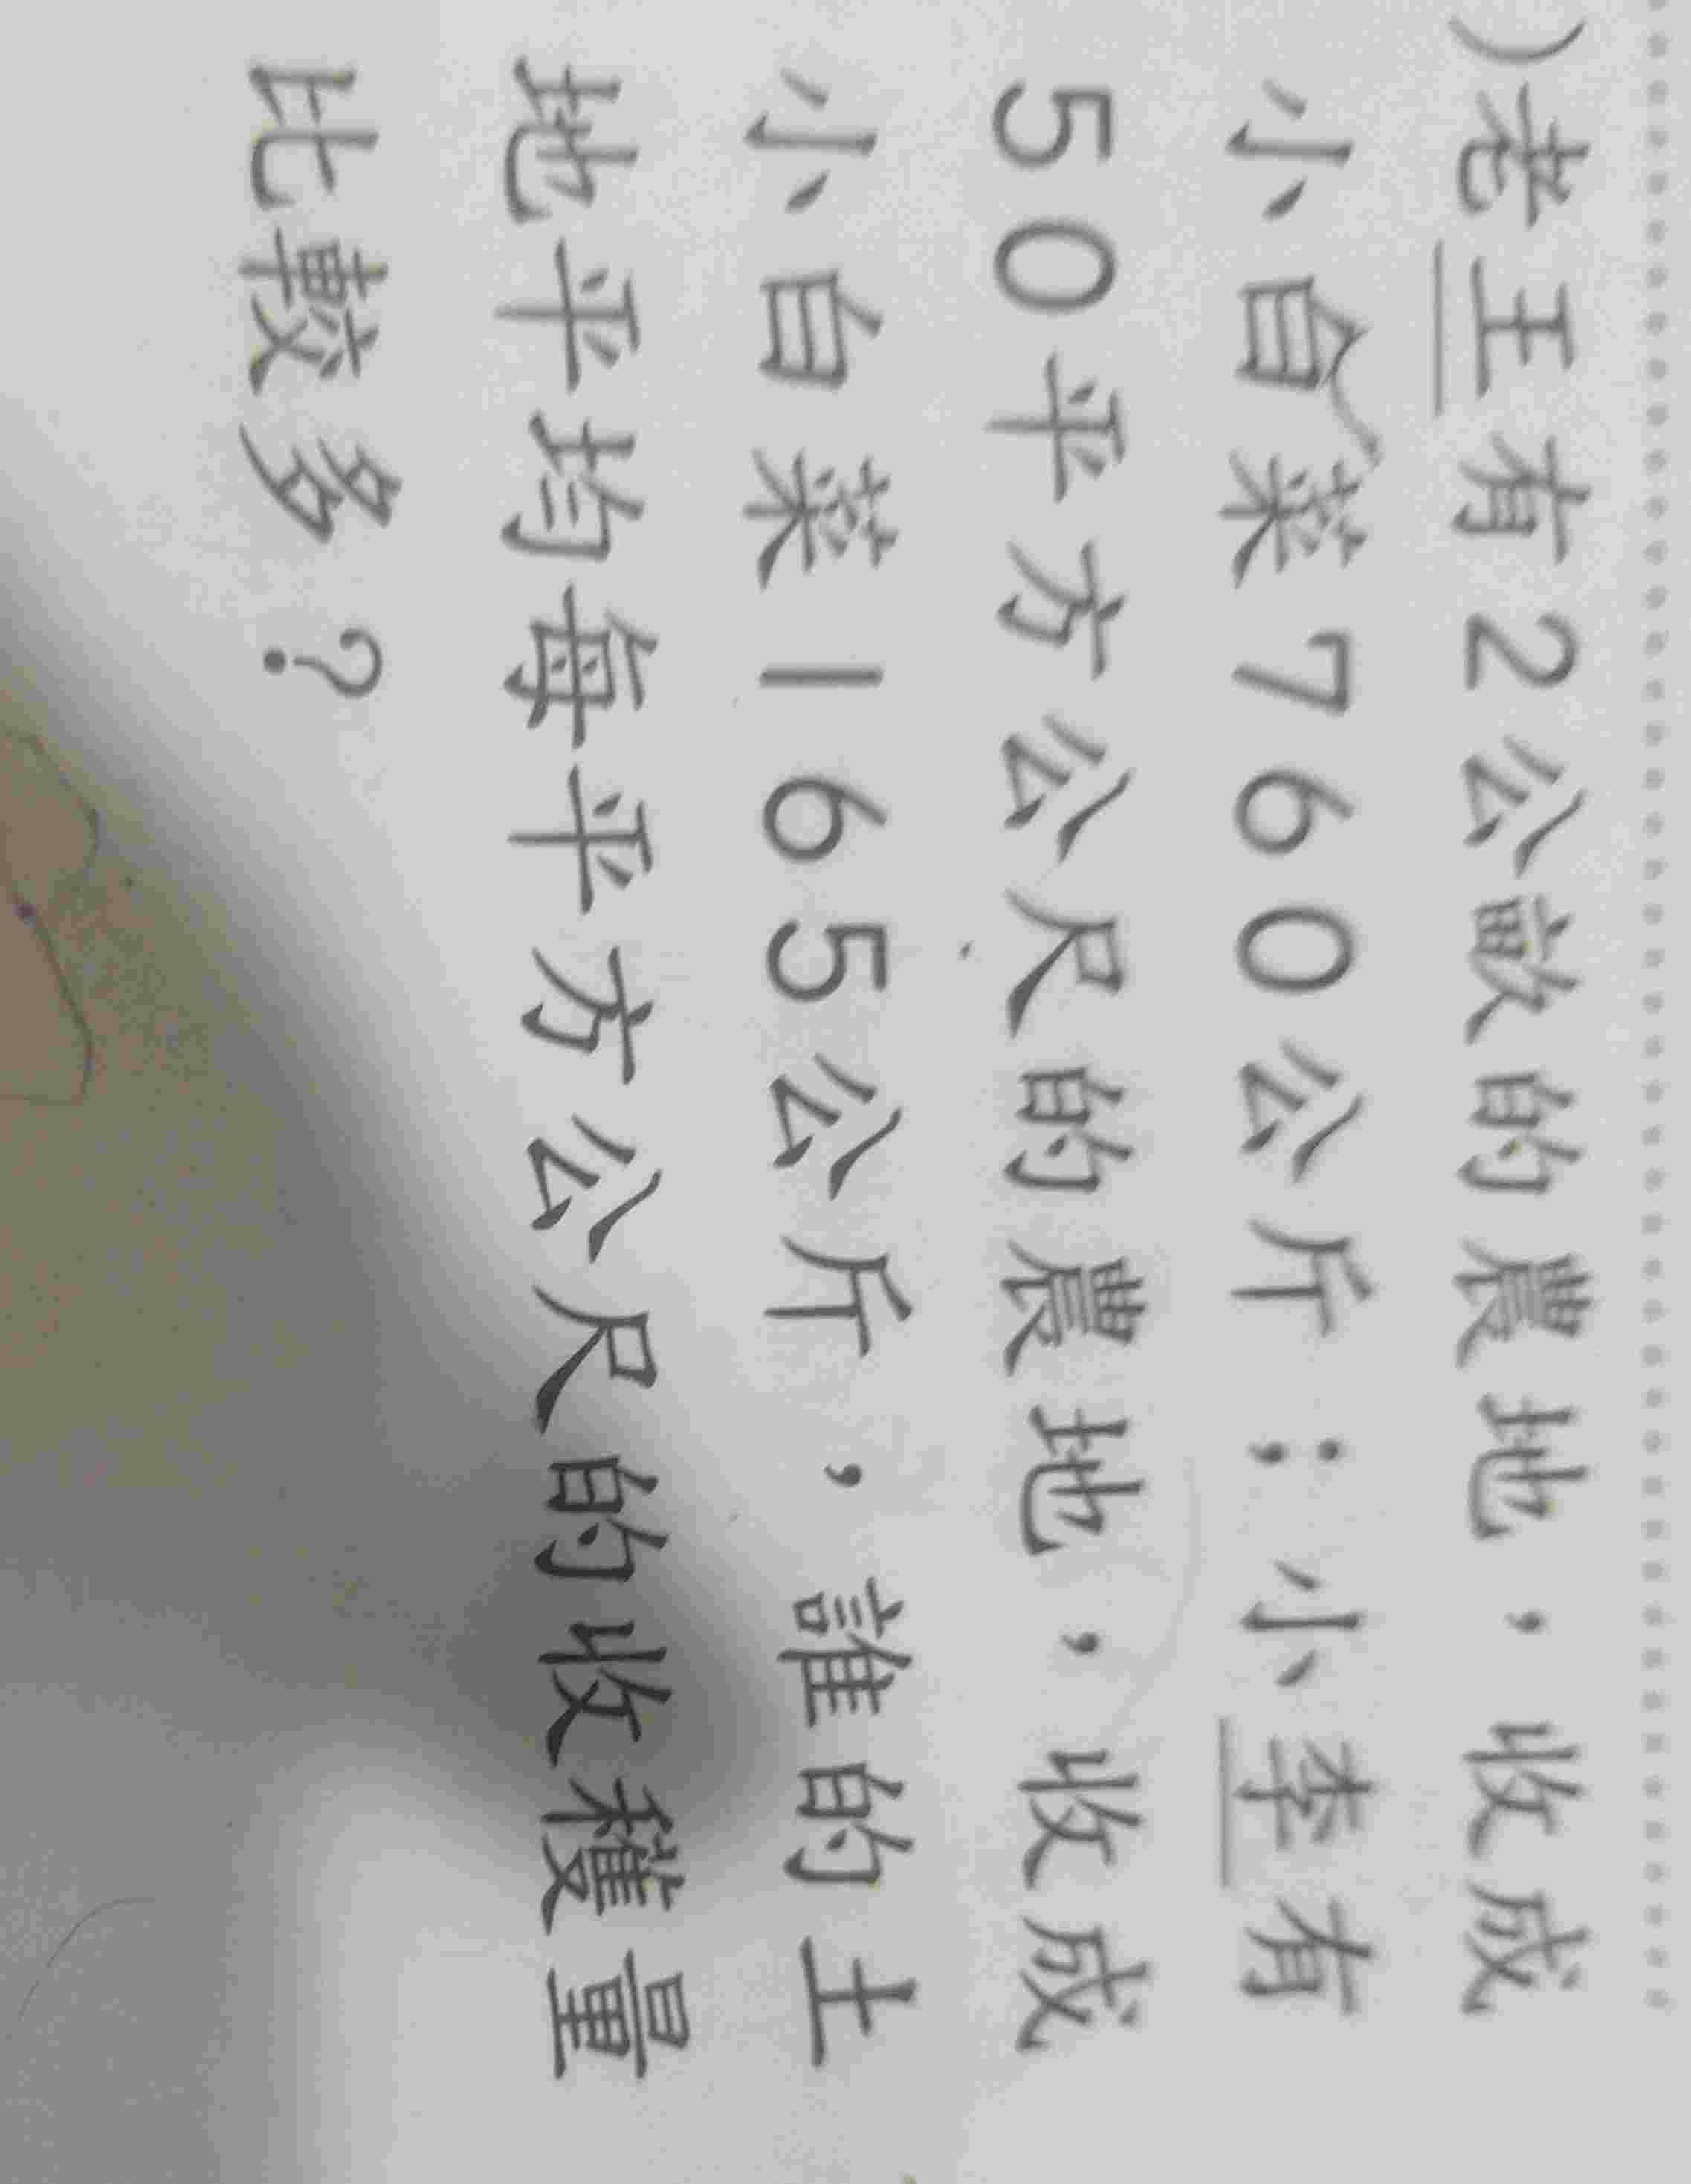 )老王有2公畝的農地，收成
小白菜760公斤；小李有
50平方公尺的農地，收成
小白菜165公斤，誰的土
地平均每平方公尺的收穫量
比較多？